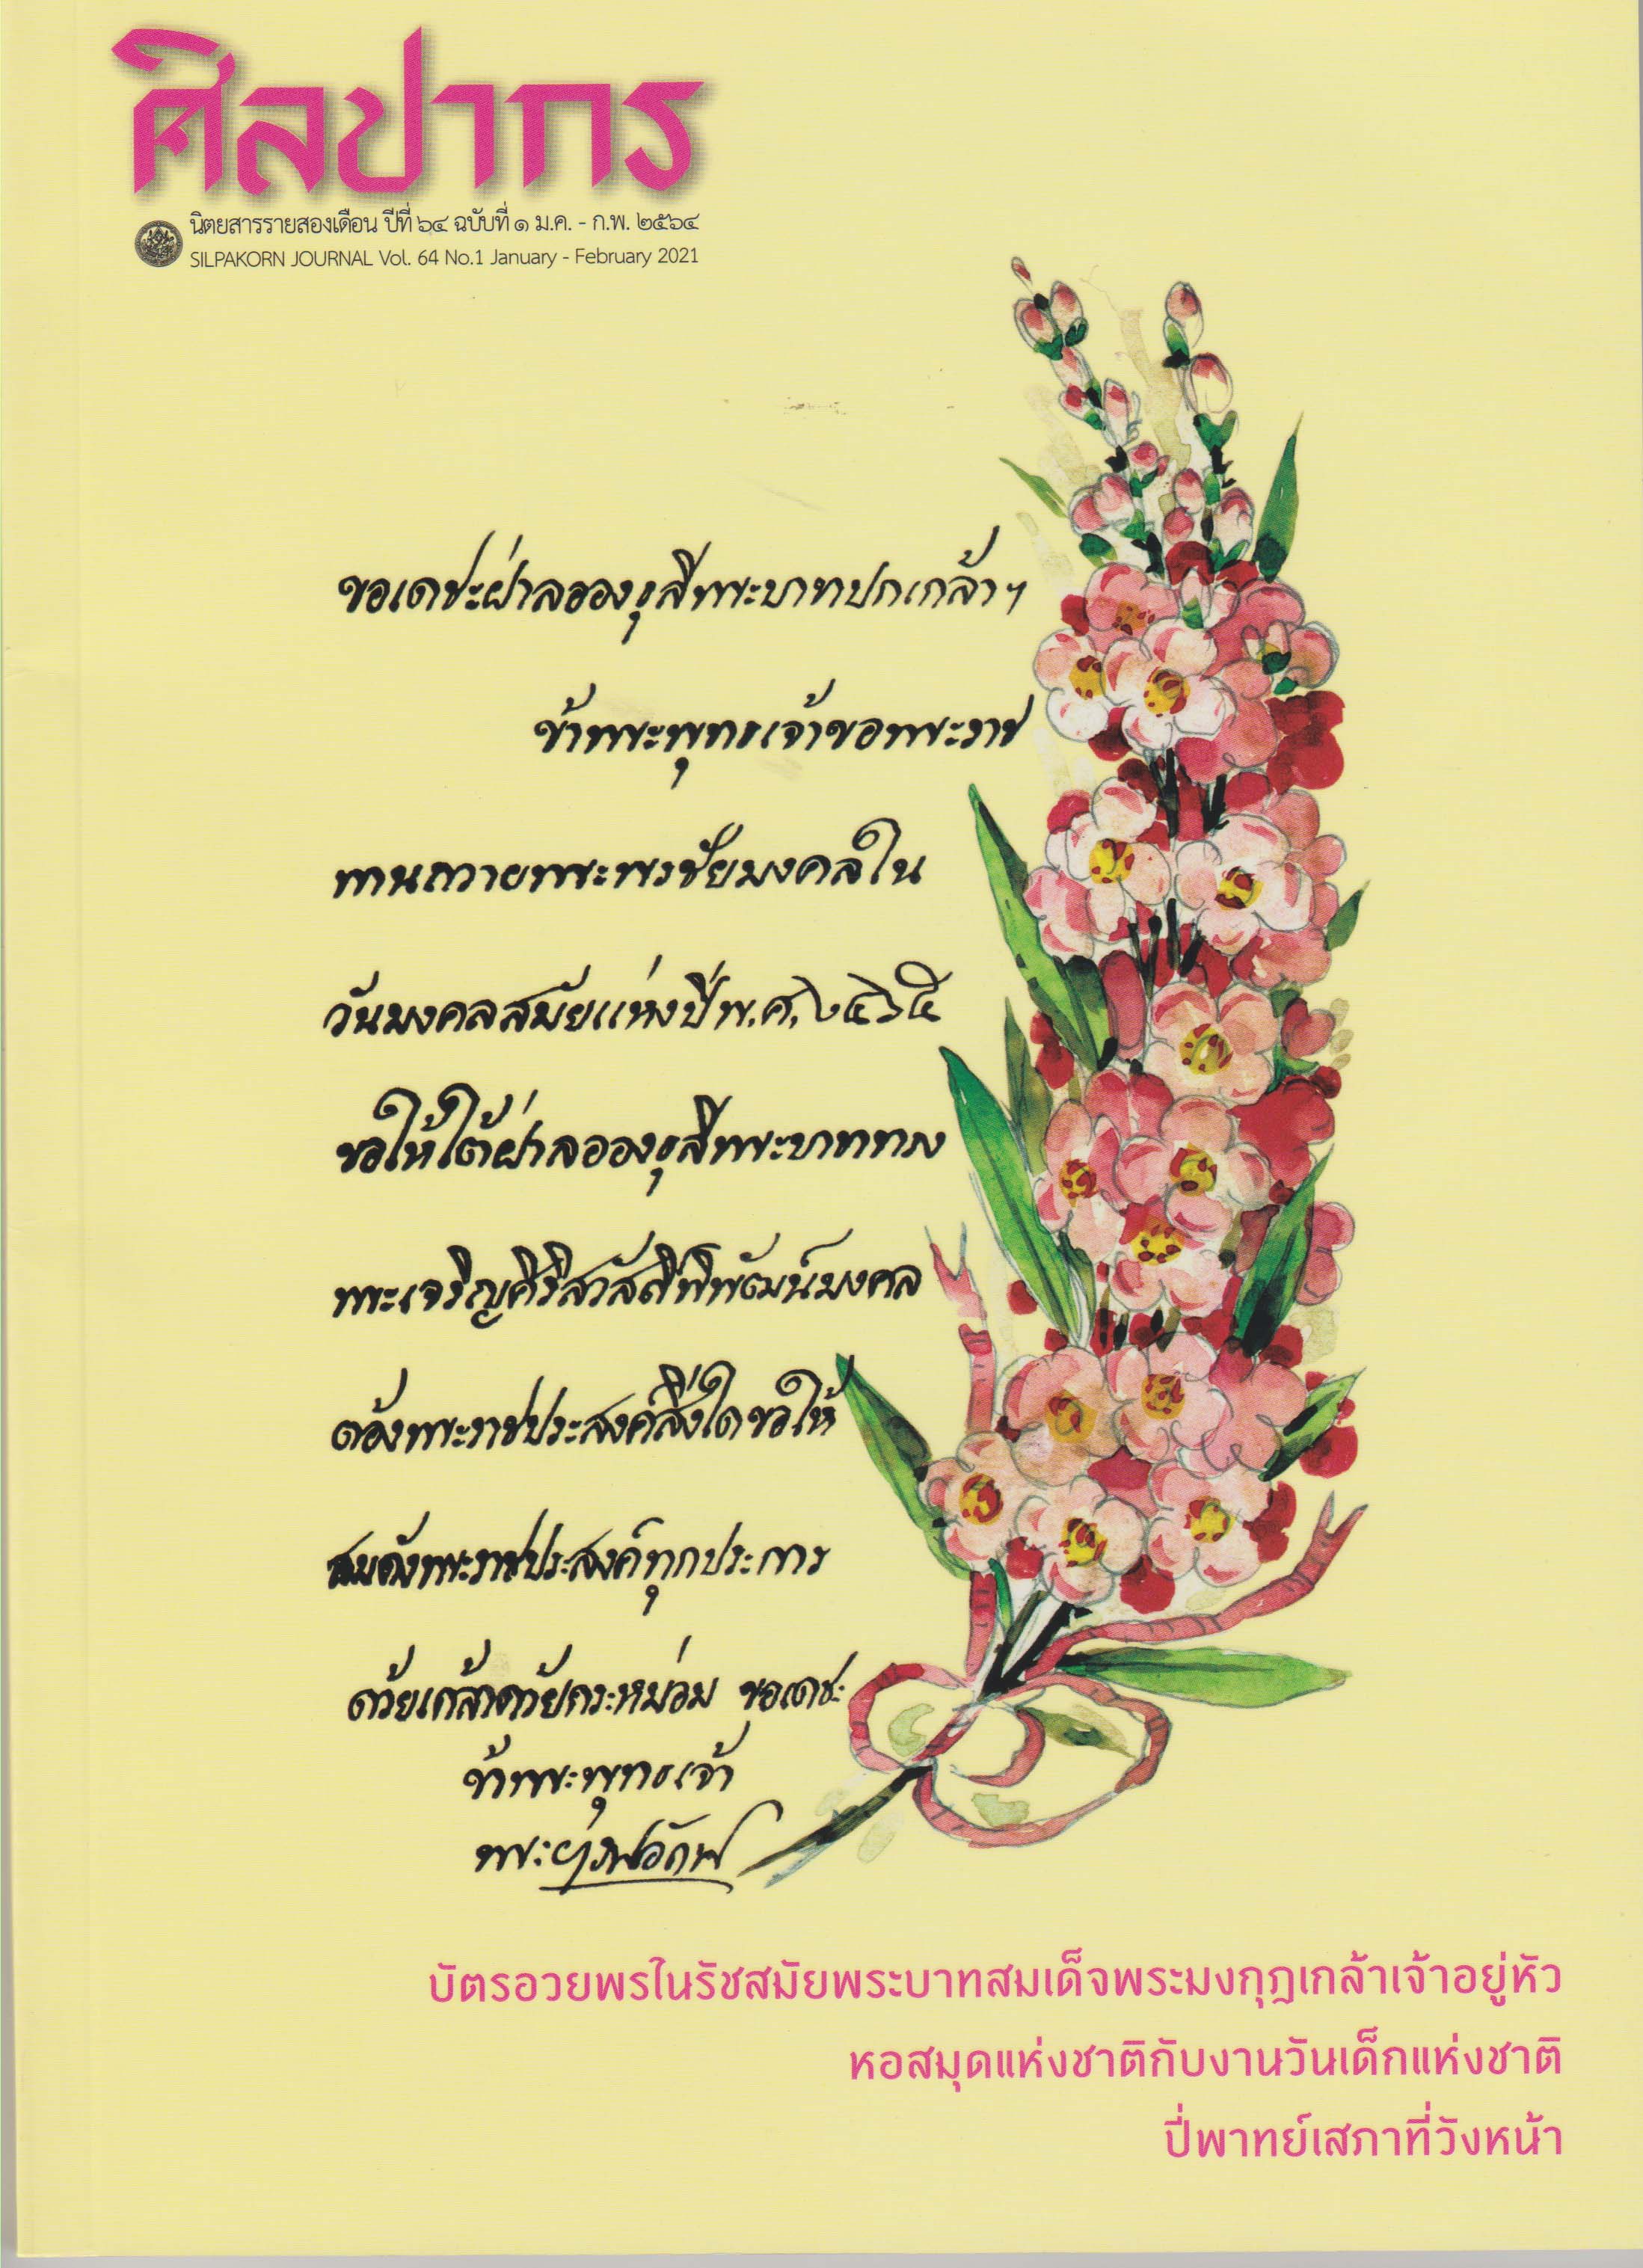 ศิลปากร
นิตยสารรายสองเดือน ปีที่ ๖๔ ฉบับที่ ๑ ม.ค. - ก.พ. ๒๕๖๔
SILPAKORN JOURNAL Vol. 64 No.1 January - February 2021
ขอเดชะฝ่าลอองธุลีพระบาทปกเกล้าฯ
ข้าพระพุทธเจ้าขอพระราช
ทานถวายพระพรชัยมงคลใน
วันมงคลสมัยแห่งปีพ.ศ.
ขอให้ใต้ฝ่าลอองธุลีพระบาททรง
พระเจริญศิริสวัสดิ์พิพัฒน์มงคล
ต้องพระราชประสงค์สิ่งใดขอให้
สมดังพระราชประสงค์ทุกประการ
ด้วยเกล้าด้วยกระหม่อม ขอเดชะ
ข้าพระพุทธเจ้า
บัตรอวยพรในรัชสมัยพระบาทสมเด็จพระมงกุฎเกล้าเจ้าอยู่หัว
หอสมุดแห่งชาติกับงานวันเด็กแห่งชาติ
ปี่พาทย์เสภาที่วังหน้า